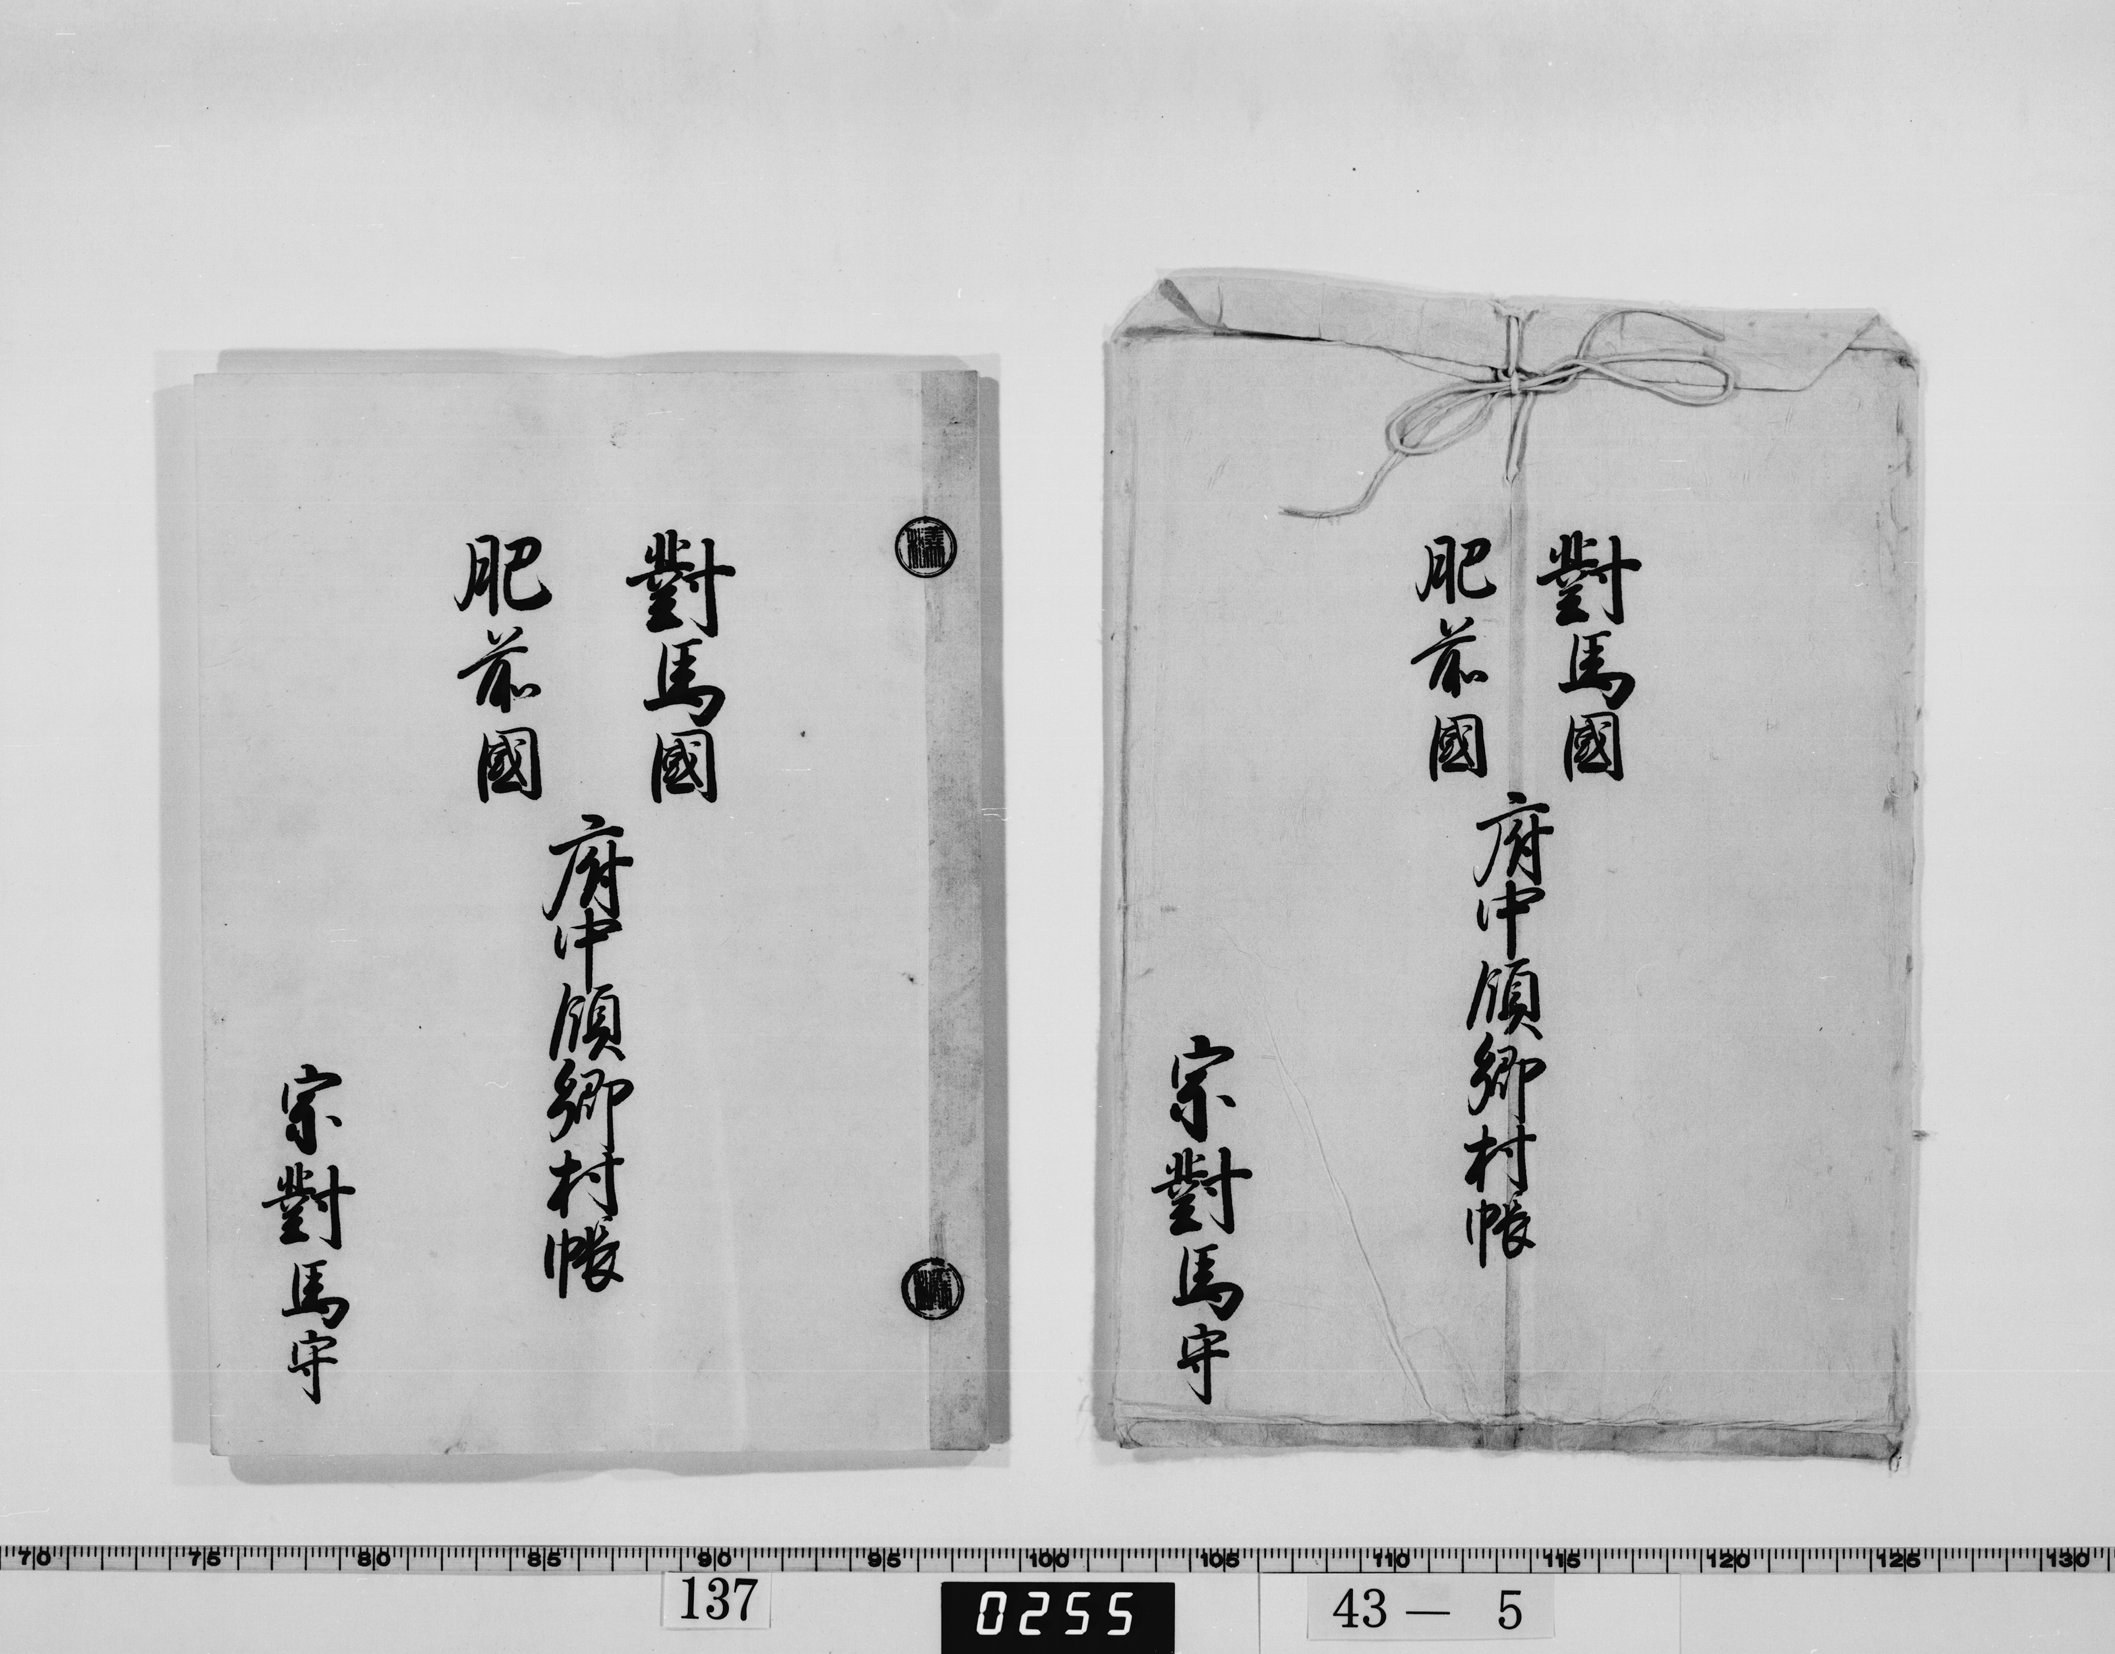 對馬國
肥前國
府中領鄉村帳
宗對馬守
對馬國
肥前國
府中領鄉村帳
宗對馬守
70 75 80 85 90 95 100 105 110 115 120 125 130
137
0255
43 — 5